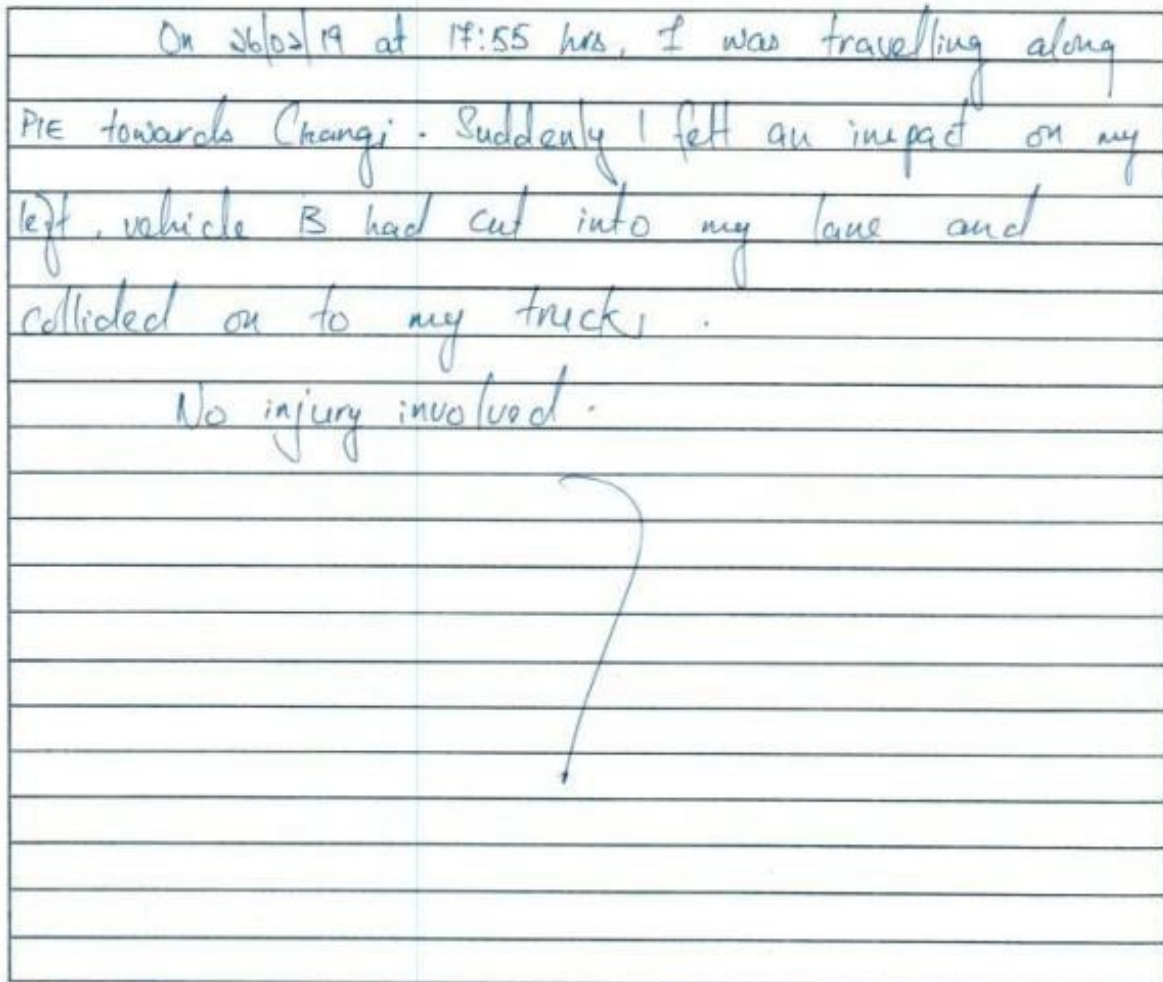 On 26/02/19 at 17:55 hrs, I was travelling along
PIE towards Changi. Suddenly I felt an impact on my
left, vehicle B had cut into my lane and
collided on to my truck,.
No injury involved.